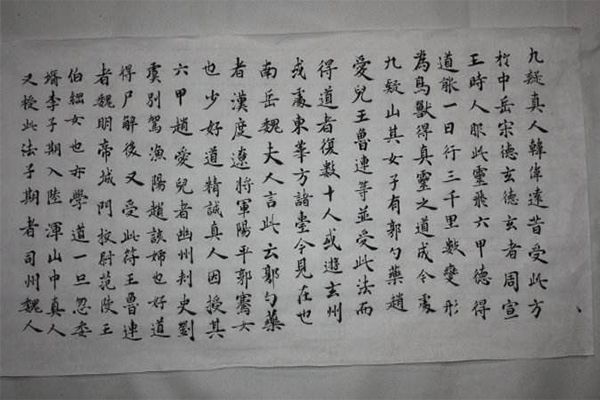 九疑真人韓偉遠昔受此方
於中岳宋德玄德玄者周宣
王時人服此靈飛六甲德得
道能一日行三千里數變形
為鳥獸得真靈之道成今處
九疑山其女子有郭勺藥趙
愛兒王魯連等並受此法而
得道者復數十人或遊玄州
或處東華方諸臺今見在也
南岳魏夫人言此云郭勺藥
者漢度遼將軍陽平郭騫女
也少好道精誠真人因授其
六甲趙愛兒者幽州刺史劉
虞別駕漁陽趙該姊也好道
得尸解後又受此符王魯連
者魏明帝城門校尉范陵王
伯綱女也亦學道一旦忽委
壻李子期入陸渾山中真人
又授此法子期者司州魏人